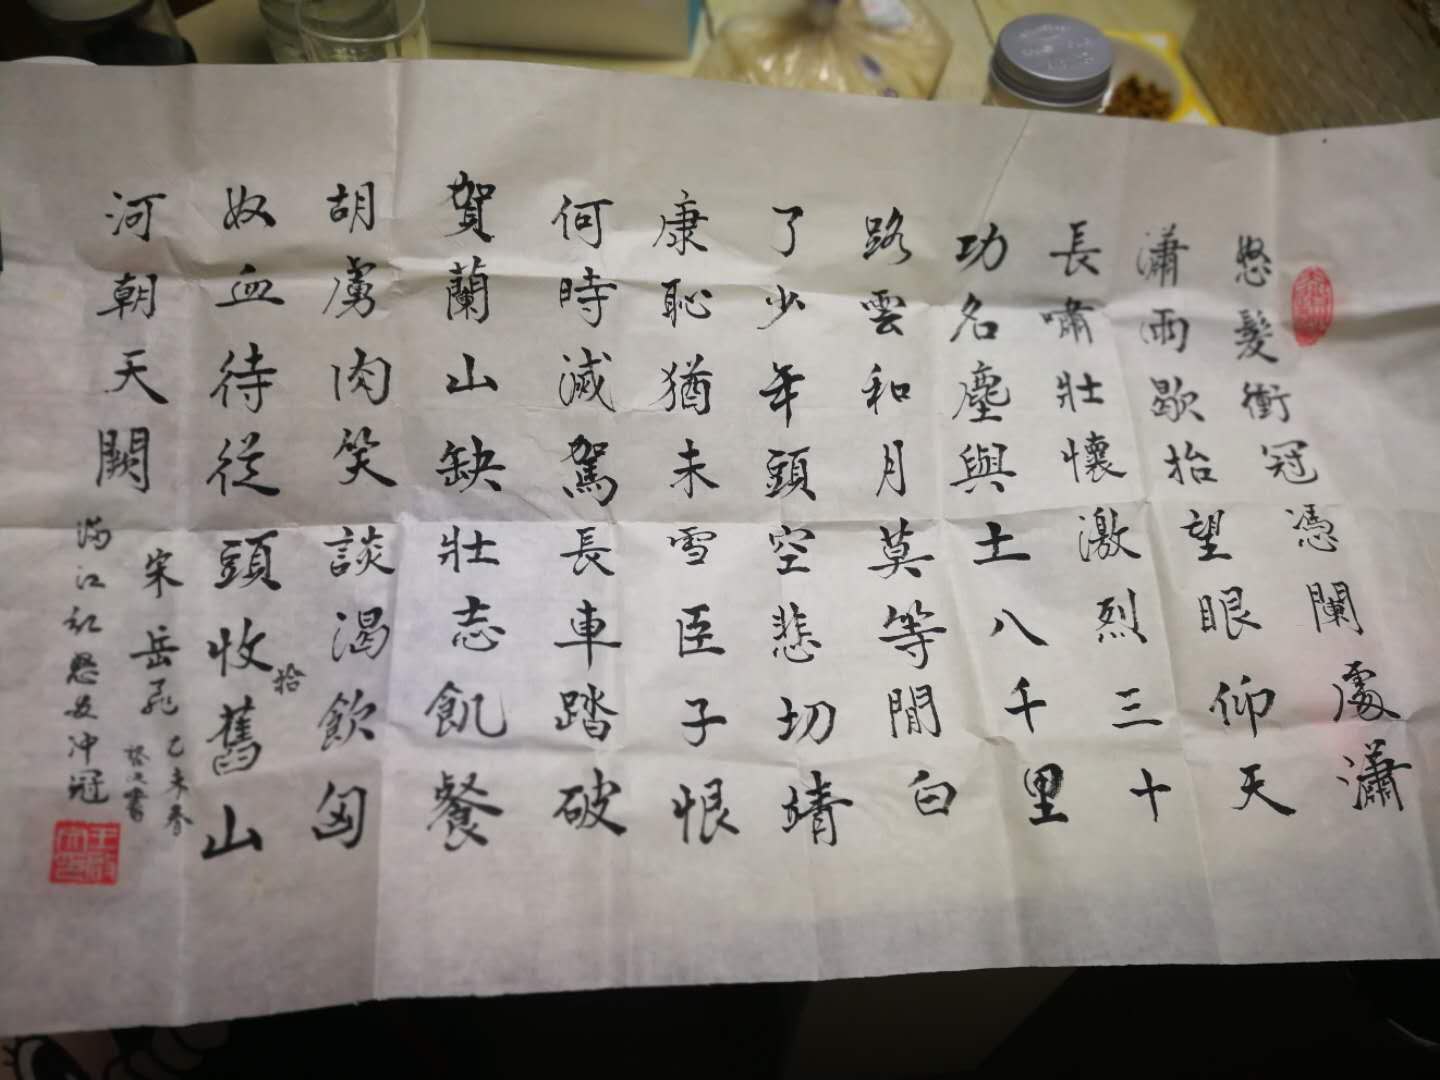 怒髮衝冠憑闌處瀟
瀟雨歇抬望眼仰天
長嘯壯懷激烈三十
功名塵與土八千里
路雲和月莫等閒白
了少年頭空悲切靖
康恥猶未雪臣子恨
何時滅駕長車踏破
賀蘭山缺壯志飢餐
胡虜肉笑談渴飲匈
奴血待從頭收舊山
拾
河朝天闕
宋岳飛
乙未春
書
滿江紅怒发冲冠